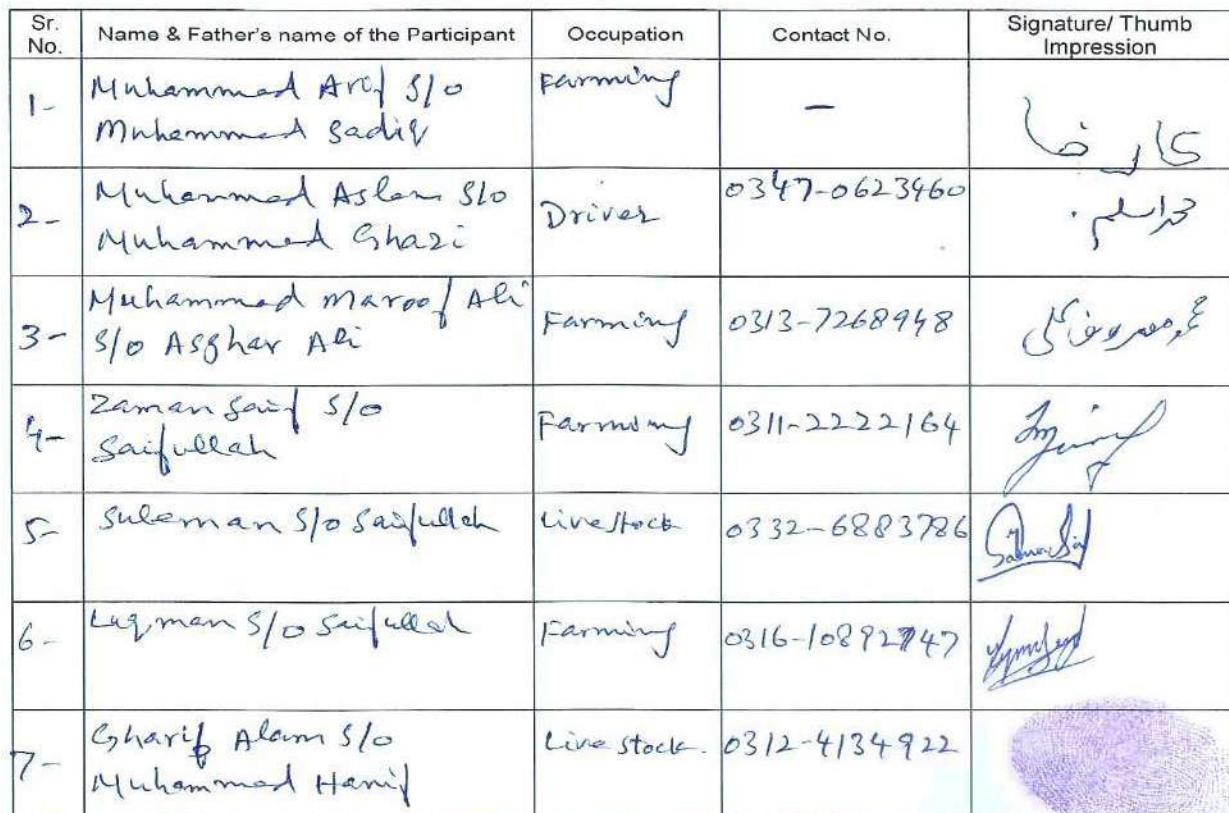 Sr. No.
Name & Father's name of the Participant
Occupation
Contact No.
Signature/ Thumb Impression
1-
Muhammad Arif S/o
Muhammad Sadiq
Farming
-
2-
Muhammad Aslam S/o
Muhammad Ghazi
Driver
0347-0623460
محمد اسلم
3-
Muhammad Maroof Ali
S/o Asghar Ali
Farming
0313-7268948
محمد معروف علی
4-
Zaman Saif S/o
Saifullah
Farming
0311-2222164
5-
Suleman S/o Saifullah
Livestock
0332-6883786
6-
Luqman S/o Saifullah
Farming
0316-10892747
7-
Gharib Alam S/o
Muhammad Hanif
Live stock.
0312-4134922